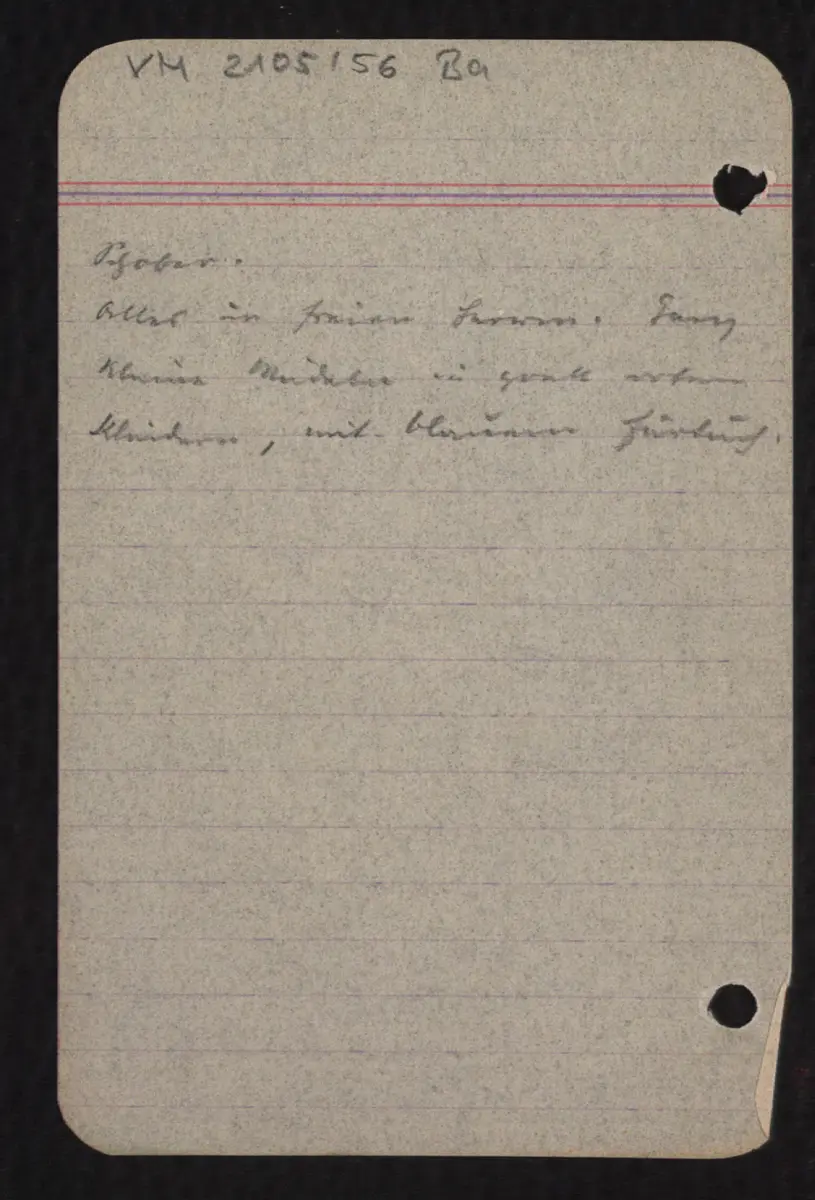 VM 2105/56 Ba
Schober.
Alles in freien Farben. Ganz
kleine Mädchen in grell roten
Kleidern, mit blauem Fürtuch.